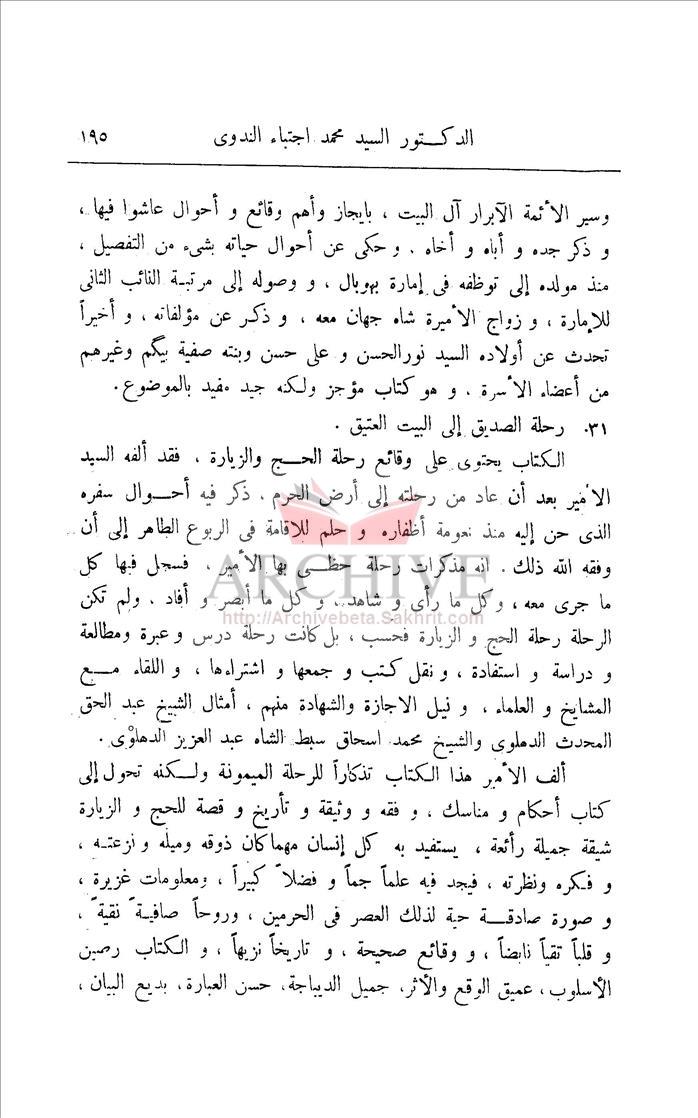 الدكتور السيد محمد اجتباء الندوى ١٩٥
وسير الأئمة الآبرار آل البيت ، بايجاز وأهم وقائع و أحوال عاشوا فيها ،
و ذكر جده و أباه و أخاه . وحكى عن أحوال حياته بشىء من التفصيل ،
منذ مولده إلى توظفه فى إمارة بهوبال ، و وصوله إلى مرتبة النائب الثانى
للإمارة ، و زواج الأميرة شاه جهان معه ، و ذكر عن مؤلفاته ، و أخيراً
تحدث عن أولاده السيد نورالحسن و على حسن وبنته صفية بيگم وغيرهم
من أعضاء الأسرة . و هو كتاب مؤجز ولكنه جيد مفيد بالموضوع .
٣١. رحلة الصديق إلى البيت العتيق .
الكتاب يحتوى على وقائع رحلة الحج والزيارة ، فقد ألفه السيد
الأمير بعد أن عاد من رحلته إلى أرض الحرم . ذكر فيه أحوال سفره
الذى حن إليه منذ نعومة أظفاره و حلم للاقامة فى الربوع الطاهر إلى أن
وفقه الله ذلك . انه مذكرات رحلة حظى بها الأمير ، فسجل فيها كل
ما جرى معه ، وكل ما رأى و شاهد ، و كل ما أبصر و أفاد . ولم تكن
ARCHIVE
http://Archivebeta.Sakhrit.com
الرحلة رحلة الحج و الزيارة فحسب ، بل كانت رحلة درس و عبرة ومطالعة
و دراسة و استفادة ، و نقل كتب و جمعها و اشتراءها ، و اللقاء مع
المشايخ و العلماء ، و نيل الاجازة والشهادة منهم ، أمثال الشيخ عبد الحق
المحدث الدهلوى والشيخ محمد اسحاق سبط الشاه عبد العزيز الدهلوْى .
ألف الأمير هذا الكتاب تذكاراً للرحلة الميمونة ولكنه تحول إلى
كتاب أحكام و مناسك ، و فقه و وثيقة و تأريخ و قصة للحج و الزيارة
شيقة جميلة رائعة ، يستفيد به كل إنسان مهماكان ذوقه وميله و نزعته ،
و فكره ونظرته ، فيجد فيه علماً جماً و فضلاً كبيراً ، ومعلومات غزيرة ،
و صورة صادقة حية لذلك العصر فى الحرمين ، وروحاً صافية ً نقية ً ،
و قلباً تقياً نابضاً ، و وقائع صحيحة ، و تاريخاً نزيهاً ، و الكتاب رصين
الأسلوب ، عميق الوقع والأثر، جميل الديباجة، حسن العبارة، بديع البيان ،